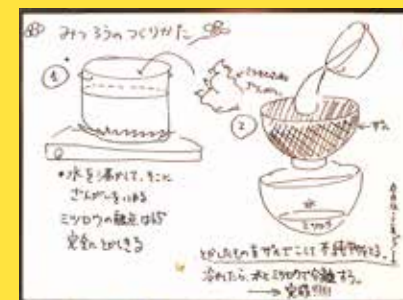 みつろうのつくりかた
①
②
ざる
・水を沸かして、そこに
ざんがいをいれる
ミツロウの融点は65°
完全にとかしきる
水
ミツロウ
とかしたものをざるでこして不純物をとる。
冷めたら、水とミツロウで分離する。
→完成!!!!!